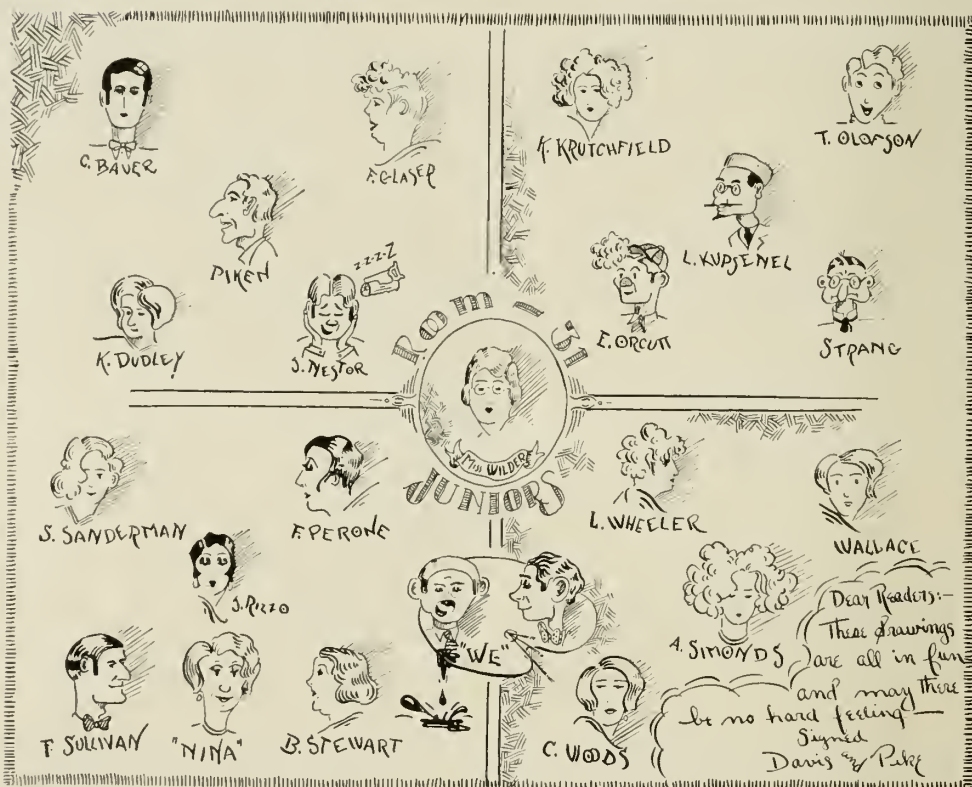 C. BAUER
F. GLASER
K. KRUTCHFIELD
T. OLOFSON
PIKEN
L. KUPSENEL
K. DUDLEY
J. NESTOR
zzzzZ
E. ORCUTT
STRANG
Room 151
MISS WILDER
JUNIORS
S. SANDERMAN
F. PERONE
L. WHEELER
WALLACE
J. RIZZO
A. SIMONDS
"WE"
T. SULLIVAN
"NINA"
B. STEWART
C. WOODS
Dear Readers:-
These drawings
are all in fun
and may there
be no hard feeling—
Signed
Davis and Pike